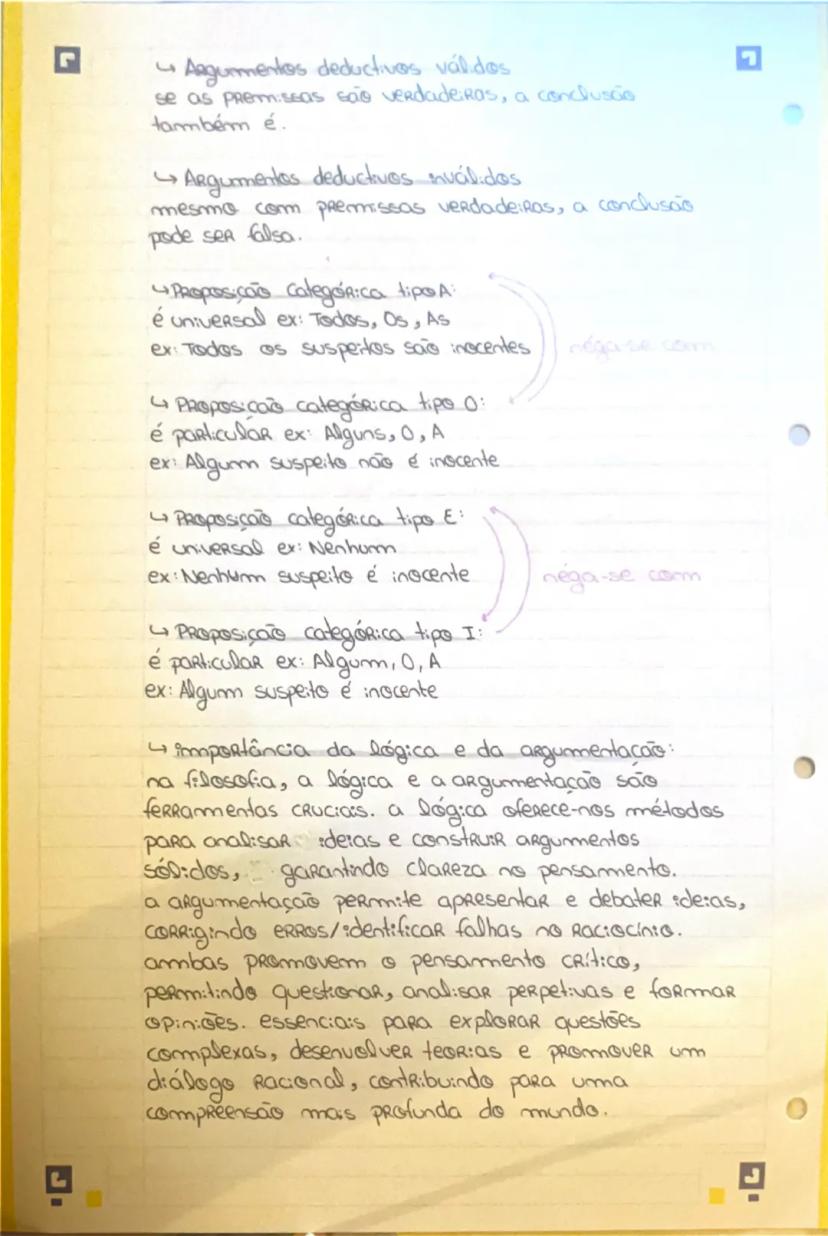 ↳ Argumentos deductivos válidos
se as premissas são verdadeiras, a conclusão
também é.
↳ Argumentos deductivos inválidos
mesmo com premissas verdadeiras, a conclusão
pode ser falsa.
↳ Proposição categórica tipo A:
é universal ex: Todos, Os, As
ex: Todos os suspeitos são inocentes
néga-se com
↳ Proposição categórica tipo O:
é particular ex: Alguns, O, A
ex: Algum suspeito não é inocente
↳ Proposição categórica tipo E:
é universal ex: Nenhum
ex: Nenhum suspeito é inocente
néga-se com
↳ Proposição categórica tipo I:
é particular ex: Algum, O, A
ex: Algum suspeito é inocente
↳ importância da lógica e da argumentação:
na filosofia, a lógica e a argumentação são
ferramentas cruciais. a lógica oferece-nos métodos
para analisar ideias e construir argumentos
sólidos, garantindo clareza no pensamento.
a argumentação permite apresentar e debater ideias,
corrigindo erros/identificar falhas no raciocínio.
ambas promovem o pensamento crítico,
permitindo questionar, analisar perpetivas e formar
opiniões. essenciais para explorar questões
complexas, desenvolver teorias e promover um
diálogo racional, contribuindo para uma
compreensão mais profunda do mundo.